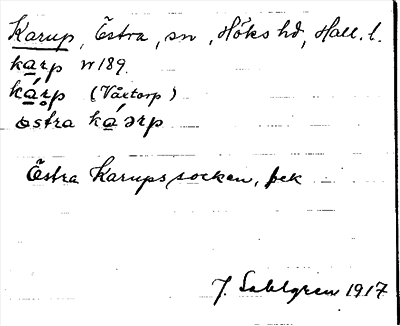 Karup, Östra, sn, Höks hd, Hall. l.
karp W189
ká̱rp (Våxtorp)
östra ká̱ərp
Östra Karups socken, fek
J. Sahlgren 1917